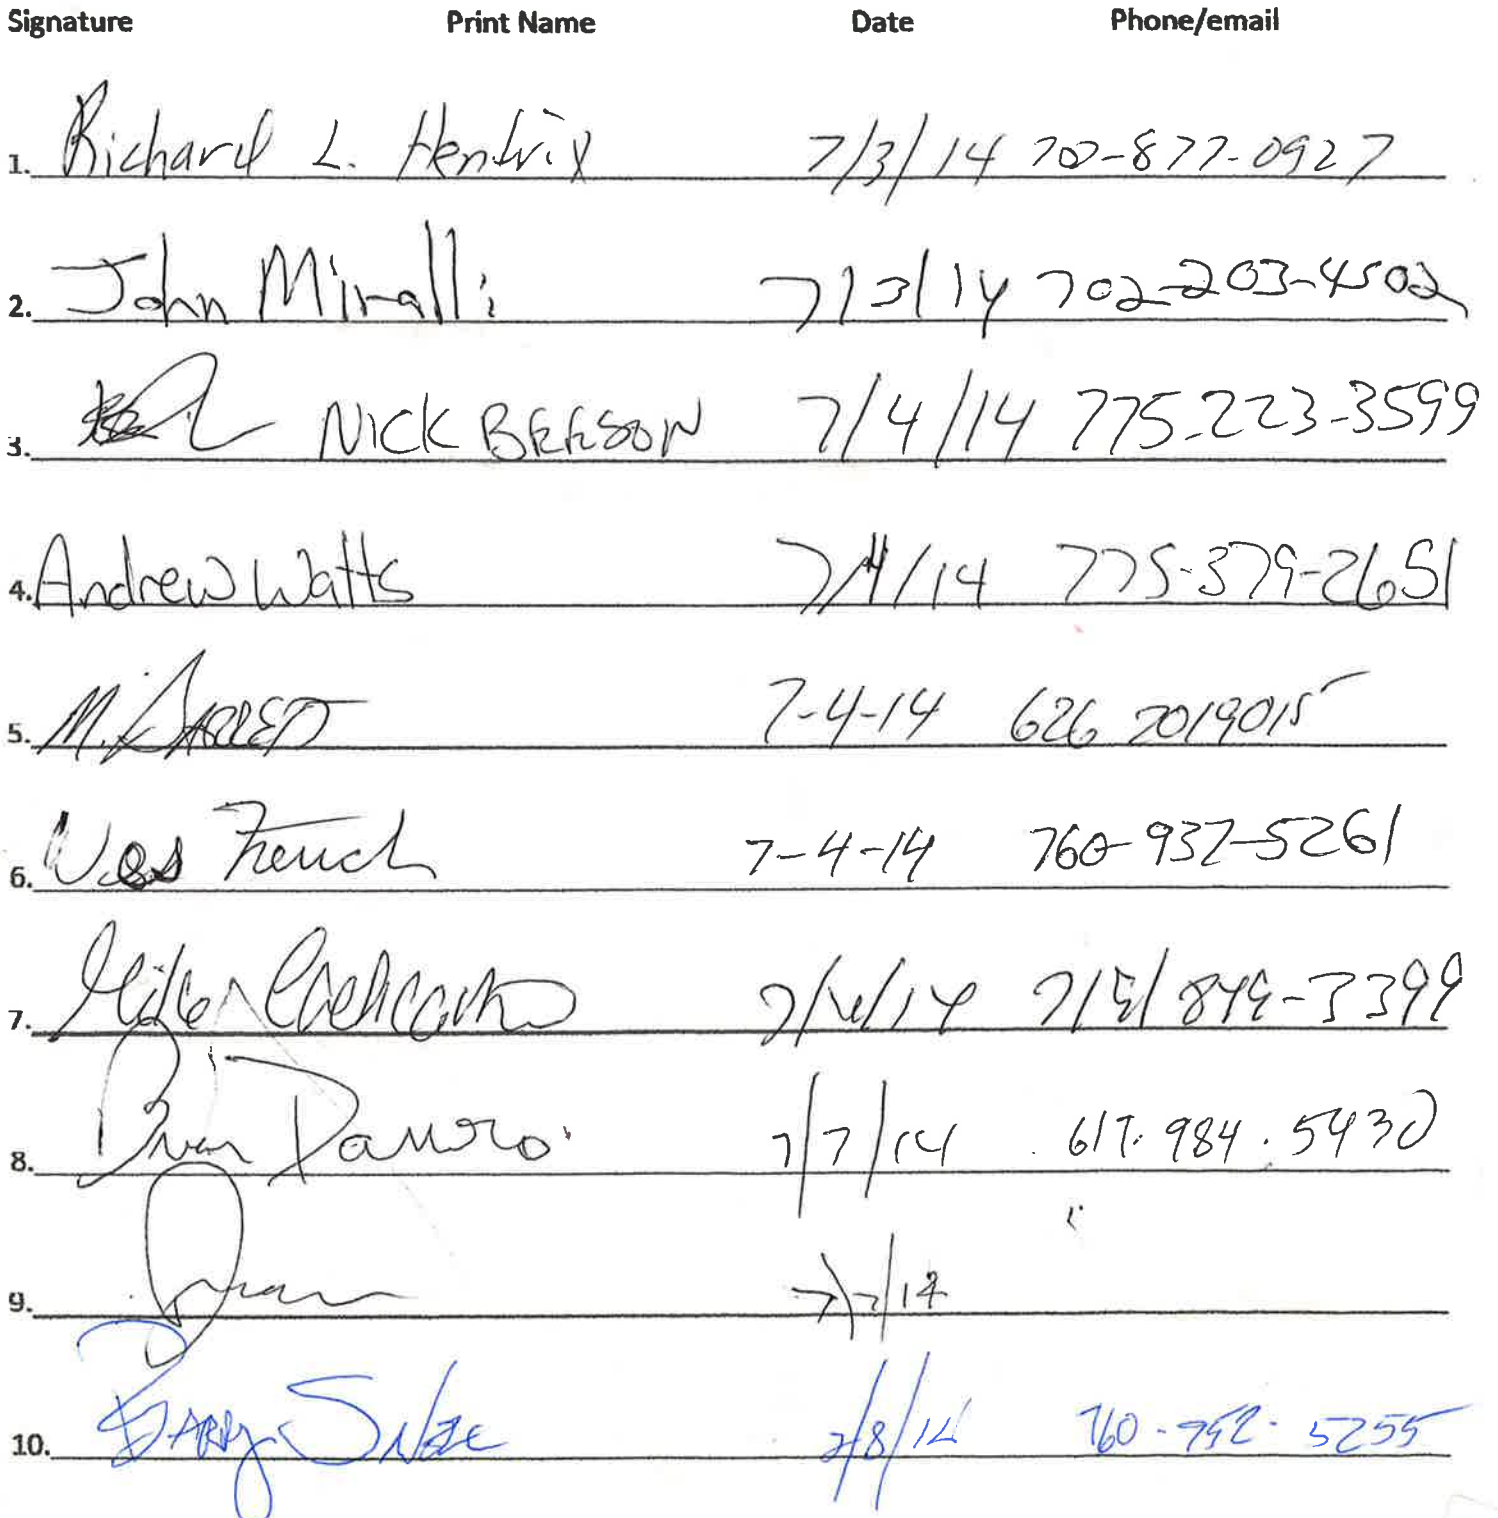 Signature Print Name Date Phone/email
1. Richard L. Hendrix 7/3/14 702-877-0927
2. John Miralli 7/3/14 702-203-4502
3. NICK BEESON 7/4/14 775-223-3599
4. Andrew Watts 7/4/14 775-379-2651
5. M. 7-4-14 626 2019015
6. Wes French 7-4-14 760-937-5261
7. Mike 7/4/14 849-3399
8. Brian 7/7/14 617.984.5430
9. 7/7/14
10. 7/8/14 5255